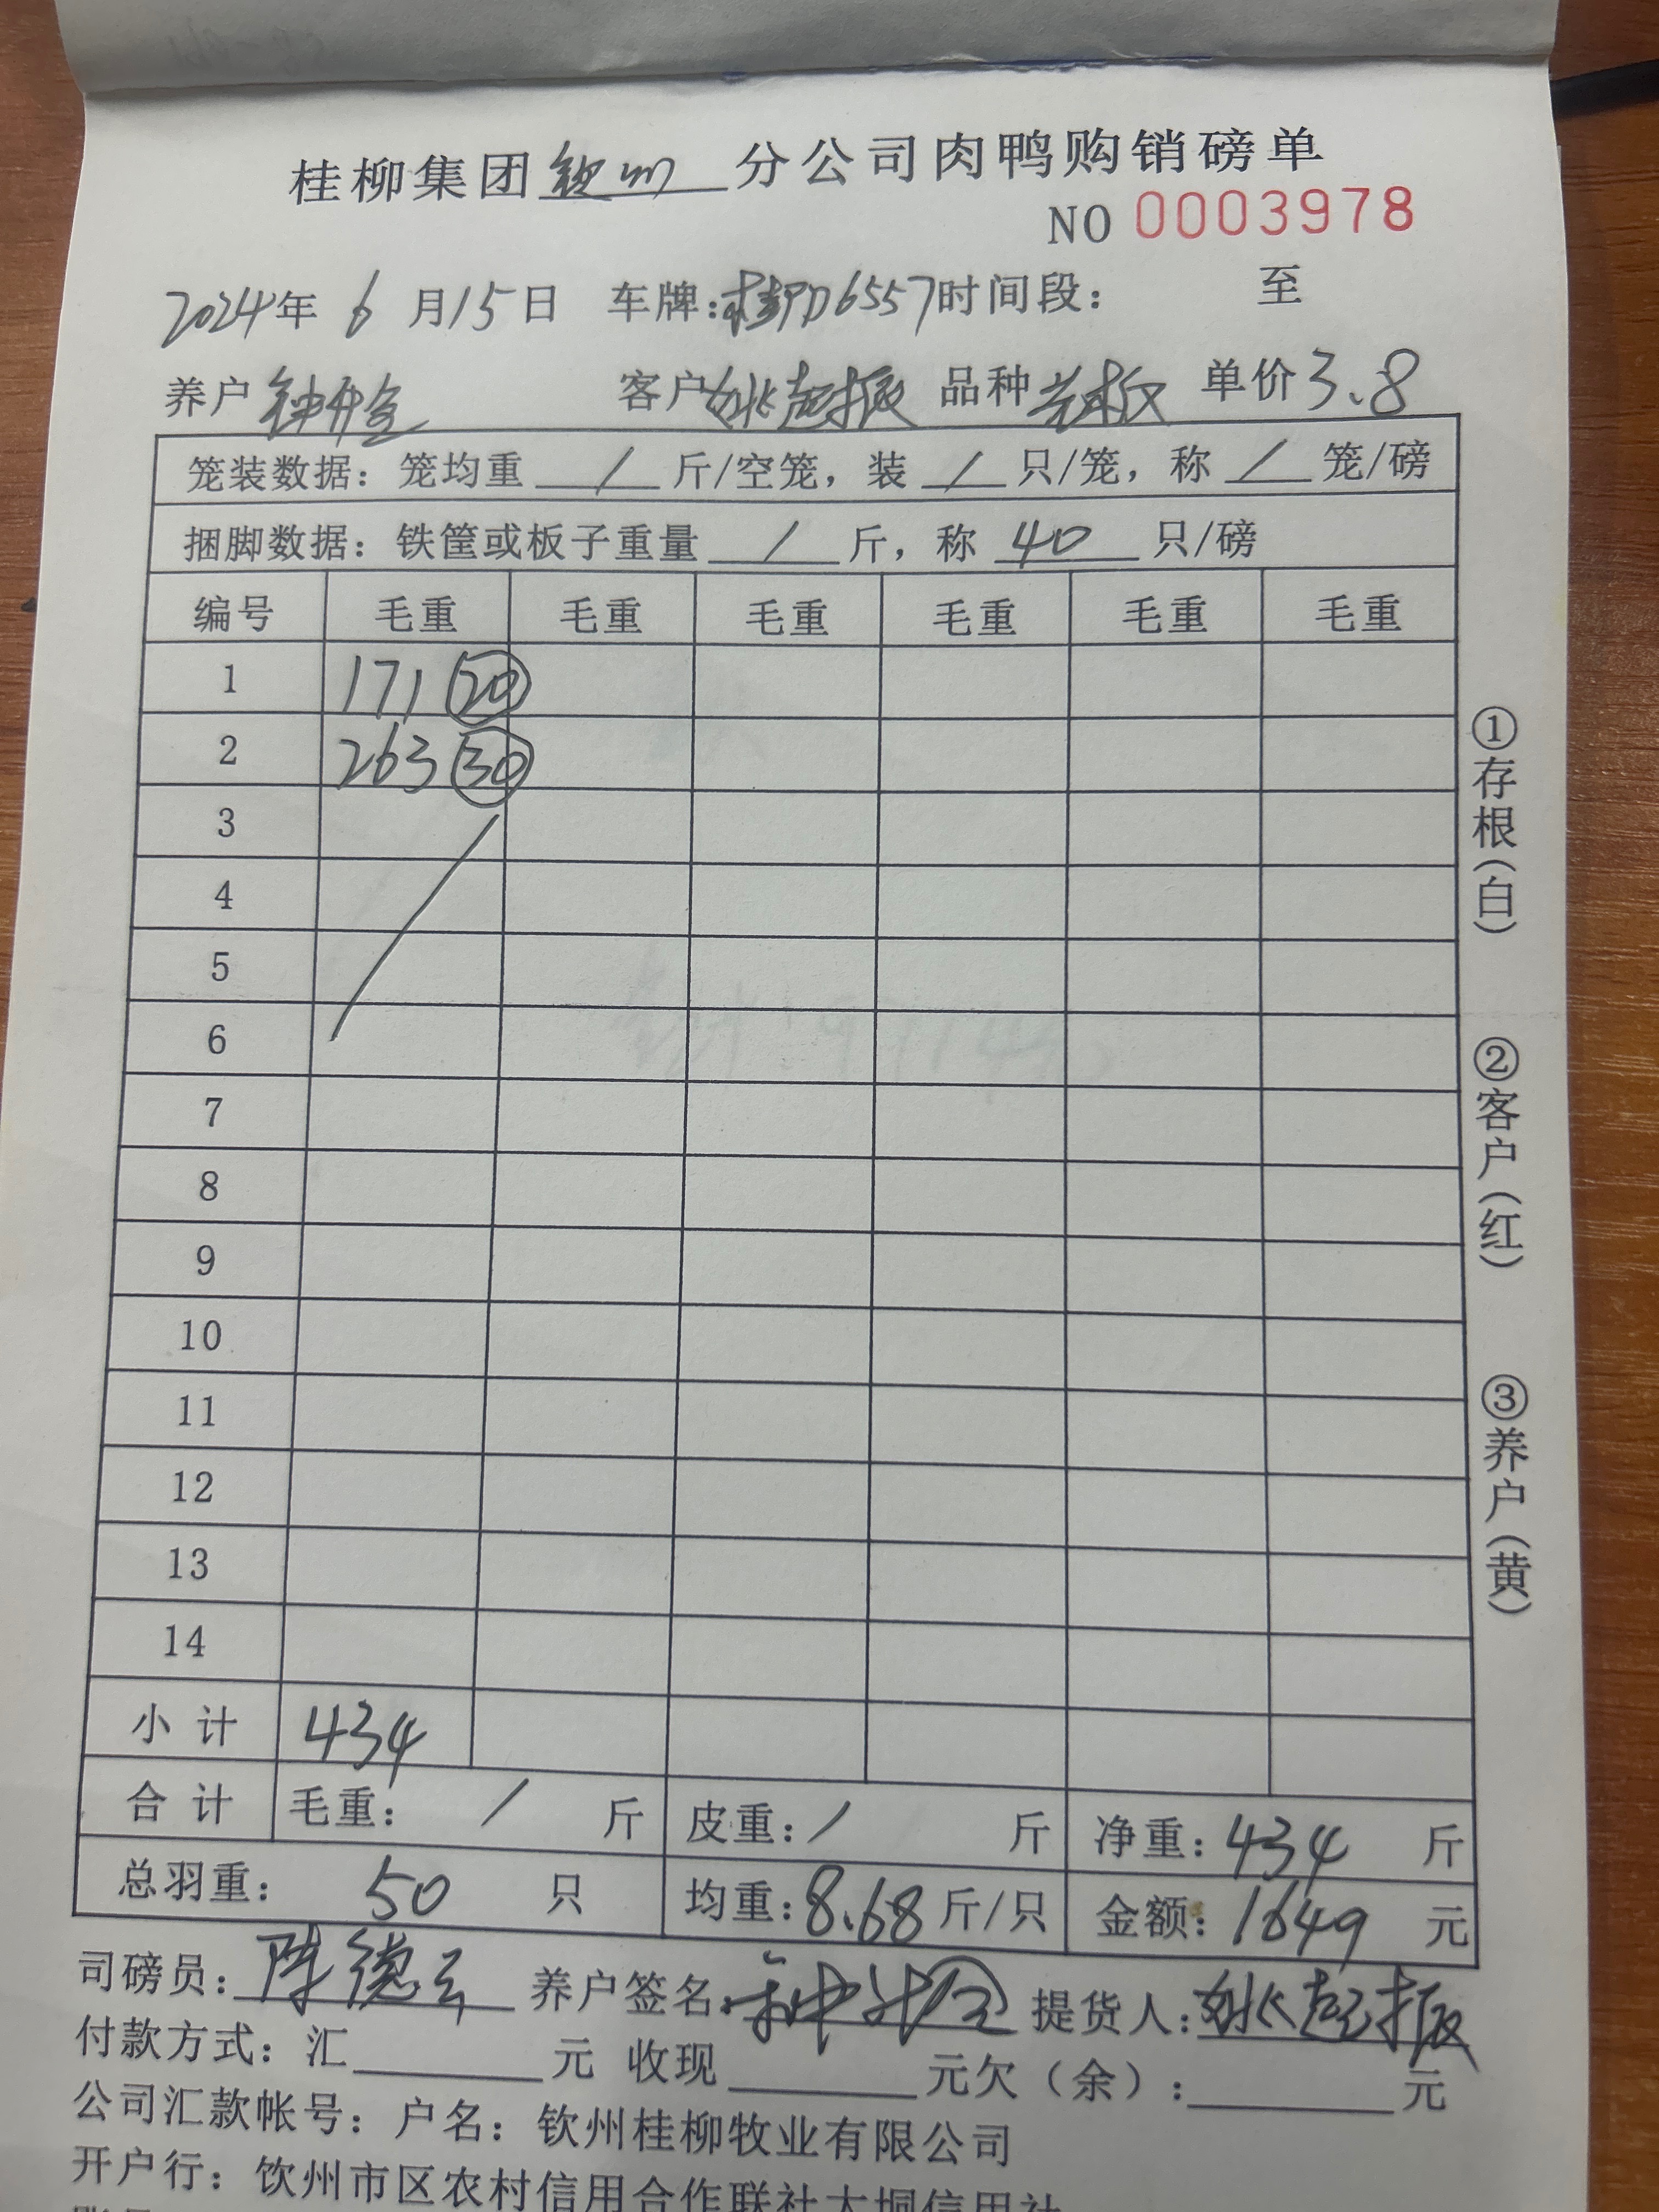 桂柳集团钦州分公司肉鸭购销磅单
NO 0003978
2024年 6 月15日 车牌:桂 D6557时间段: 至
养户 钟 客户姚起振 品种 单价3.8
笼装数据: 笼均重 / 斤/空笼, 装 / 只/笼, 称 / 笼/磅
捆脚数据: 铁筐或板子重量 / 斤, 称 40 只/磅
编号 毛重 毛重 毛重 毛重 毛重 毛重
1 171 20
2 263 30
3
4
5
6
7
8
9
10
11
12
13
14
小计 434
合计 毛重: / 斤 皮重: / 斤 净重: 434 斤
总羽重: 50 只 均重: 8.68 斤/只 金额: 1649 元
司磅员: 陈德云 养户签名: 钟 提货人: 姚起振
付款方式: 汇 元 收现 元欠(余): 元
公司汇款帐号: 户名: 钦州桂柳牧业有限公司
开户行: 饮州市区农村信用合作联社大垌信用社
①存根(白)
②客户(红)
③养户(黄)